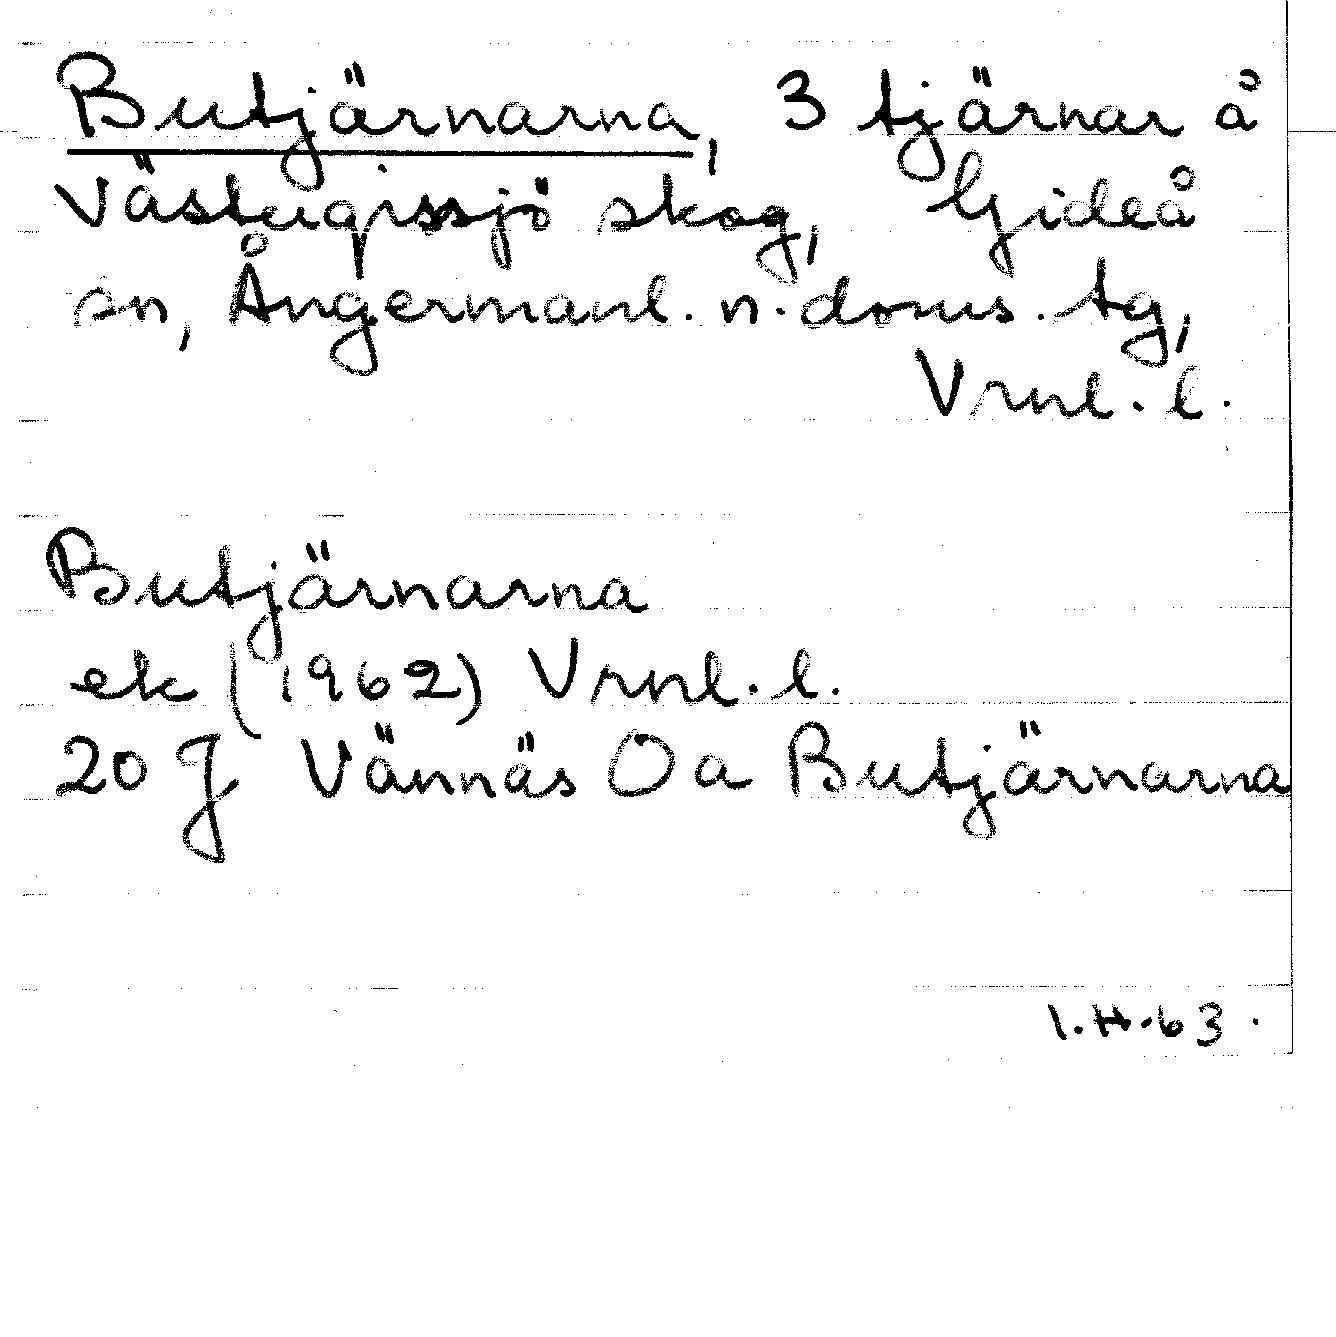 Butjärnarna, 3 tjärnar å
Västergissjö skog, Gideå
sn, Ångermanl. n. doms. tg,
Vrnl. l.
Butjärnarna
ek (1962) Vrnl. l.
20 J Vännäs Öa Butjärnarna
1.H.63.